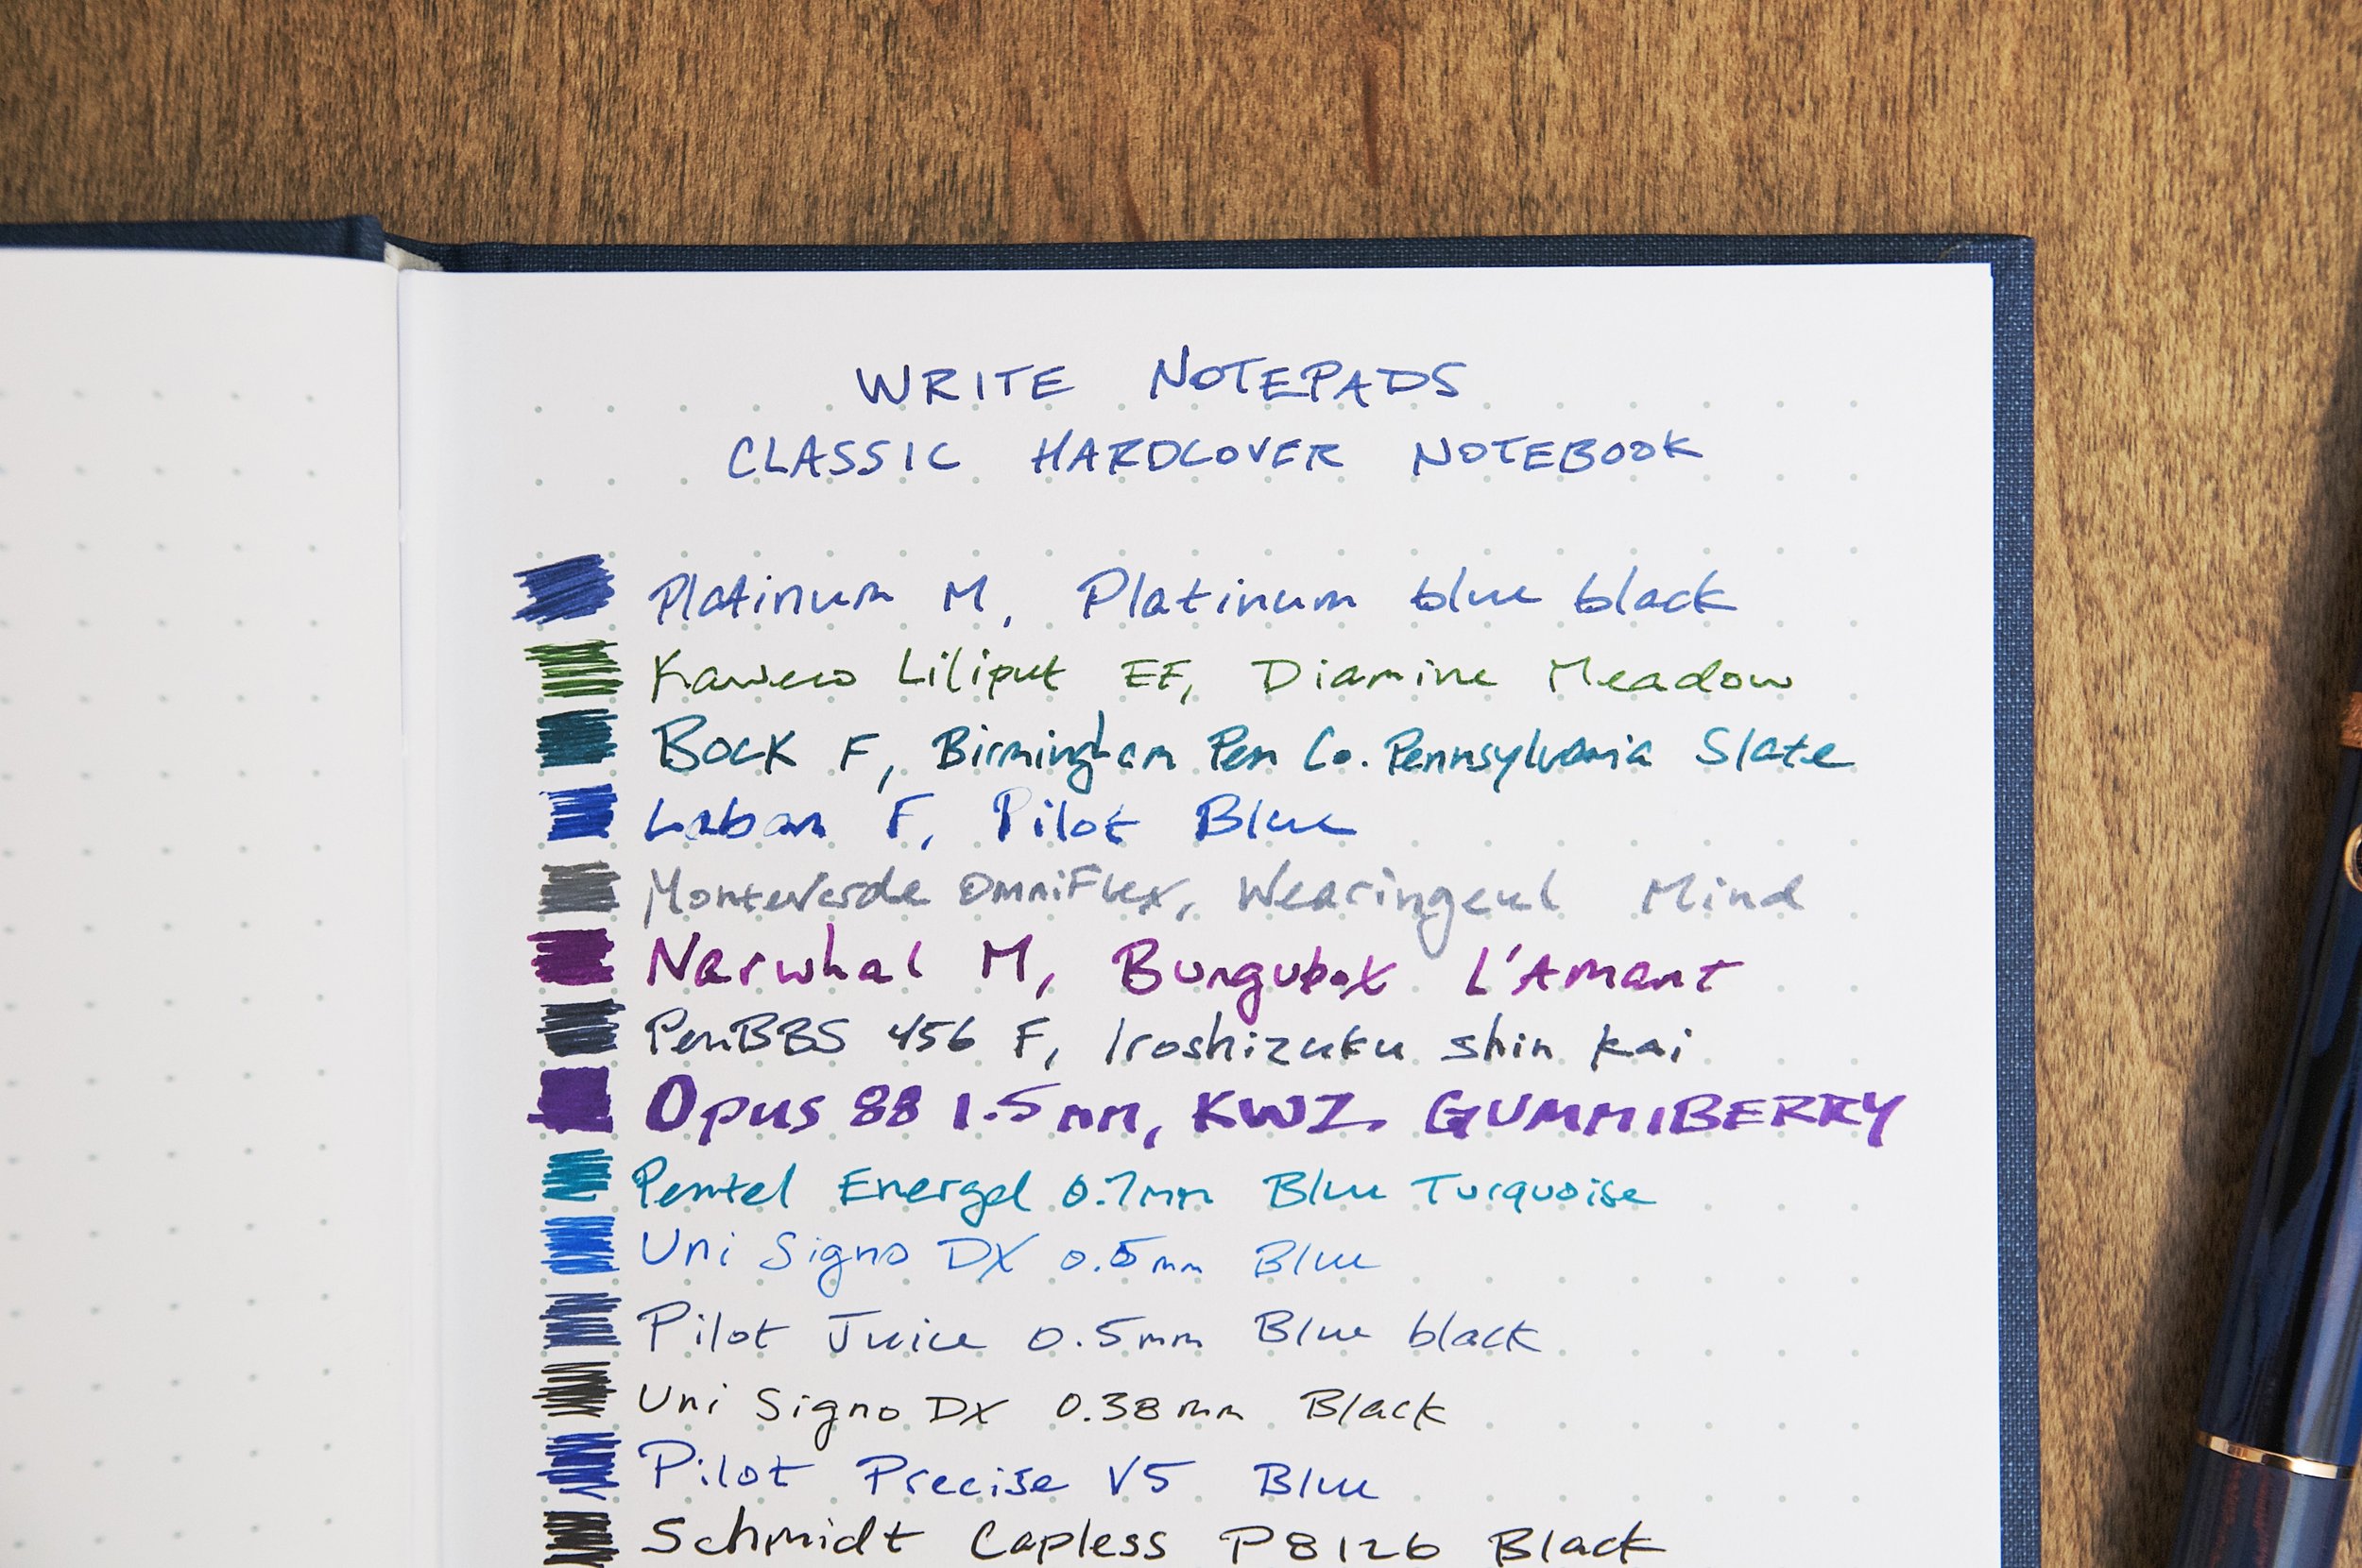 WRITE NOTEPADS
CLASSIC HARDCOVER NOTEBOOK
Platinum M, Platinum blue black
Kaweco Liliput EF, Diamine Meadow
Bock F, Birmingham Pen Co. Pennsylvania Slate
Laban F, Pilot Blue
Monteverde OmniFlex, Wearingeul Mind
Narwhal M, Bungubox L'Amant
PenBBS 456 F, Iroshizuku shin kai
Opus 88 1.5mm, KWZ GUMMIBERRY
Pentel Energel 0.7mm Blue Turquoise
Uni Signo DX 0.5mm Blue
Pilot Juice 0.5mm Blue black
Uni Signo DX 0.38mm Black
Pilot Precise V5 Blue
Schmidt Capless P8126 Black